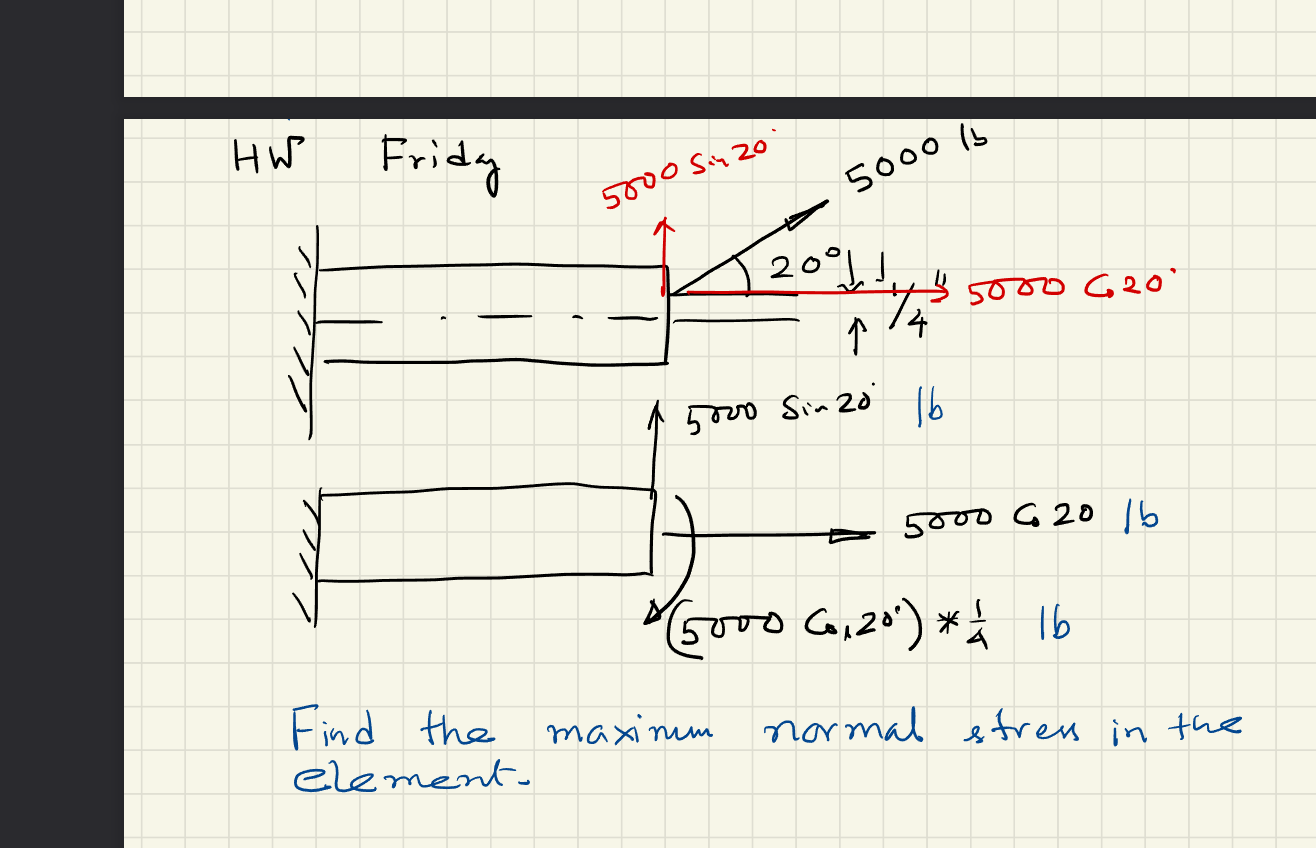 HW Friday
5000 Sin 20°
5000 lb
20°
1/4"
5000 Cos 20°
5000 Sin 20° lb
5000 Cos 20 lb
(5000 Cos 20°) * 1/4 lb
Find the maximum normal stress in the
element.